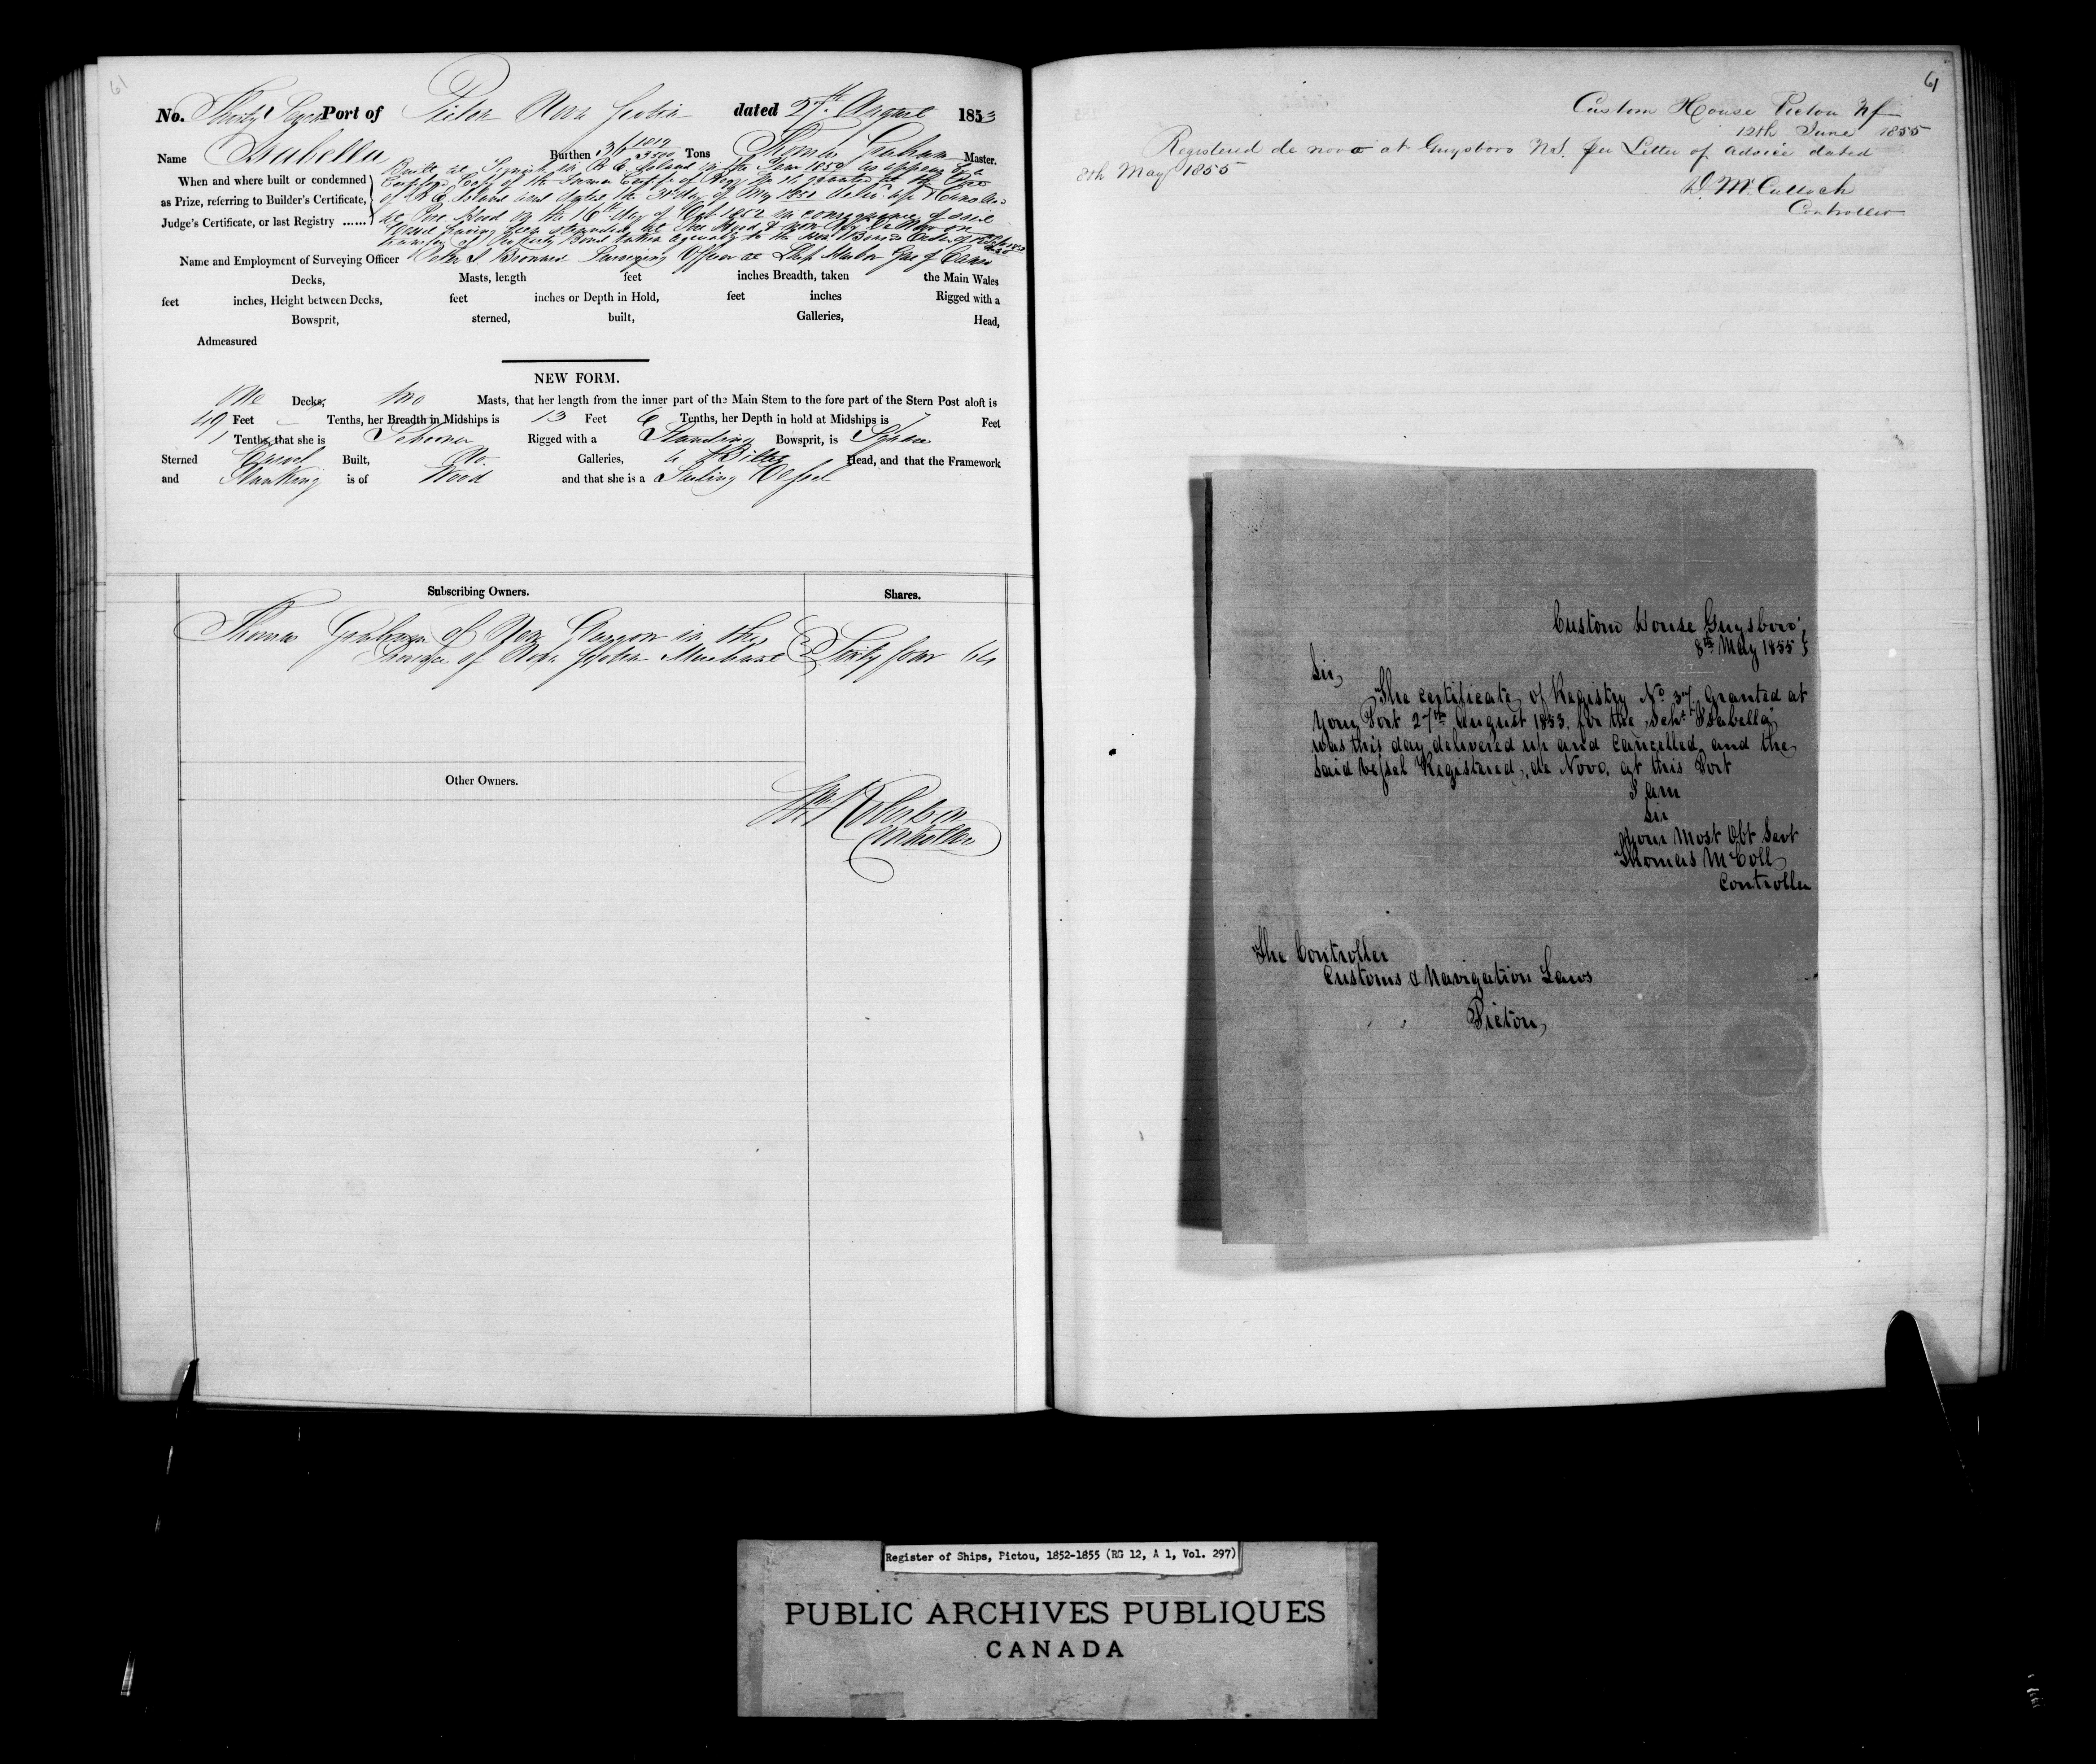 61
No. Thirty Seven Port of Pictou Nova Scotia dated 27th August 1853
Name Isabella Burthen 36 1819/3500 Tons Thomas Graham Master.
When and where built or condemned
as Prize, referring to Builder's Certificate,
Judge's Certificate, or last Registry ......
Built at Tignish in P. E. Island in the Year 1850 as appears by a
of P. E. Island and dated the 31st day of May 1850
on the 16th day of Oct. 1852 in consequence of said
Vessel having been stranded
Name and Employment of Surveying Officer Peter S Brouard Surveying Officer at Ship Harbor Gut of Canso
Decks, Masts, length feet inches Breadth, taken the Main Wales
feet inches, Height between Decks, feet inches or Depth in Hold, feet inches Rigged with a
Bowsprit, sterned, built, Galleries, Head,
Admeasured
NEW FORM.
One Decks, two Masts, that her length from the inner part of the Main Stem to the fore part of the Stern Post aloft is
49 Feet – Tenths, her Breadth in Midships is 13 Feet 6 Tenths, her Depth in hold at Midships is 7 Feet
1 Tenths, that she is Schooner Rigged with a Standing Bowsprit, is Square
Sterned Carvel Built, No. Galleries, a Billet Head, and that the Framework
and Planking is of Wood and that she is a Sailing Vessel
Subscribing Owners. Shares.
Thomas Graham of New Glasgow in the
Province of Nova Scotia Merchant Sixty four 64
Other Owners.
Wm Robertson
Controller
61
Custom House Pictou NS
12th June 1855
Registered de novo at Guysboro N.S. per Letter of advice dated
8th May 1855
D. McCulloch
Controller
Custom House Guysboro'
8th May 1855
Sir,
The certificate of Registry No. 37 Granted at
Your Port 27th August 1853, for the Schr. "Isabella"
was this day delivered up and cancelled, and the
said Vessel Registered, de Novo, at this Port
I am
Sir
Your Most Obt Servt
Thomas McColl
Controller
The Controller
Customs & Navigation Laws
Pictou,
Register of Ships, Pictou, 1852-1855 (RG 12, A 1, Vol. 297)
PUBLIC ARCHIVES PUBLIQUES
CANADA